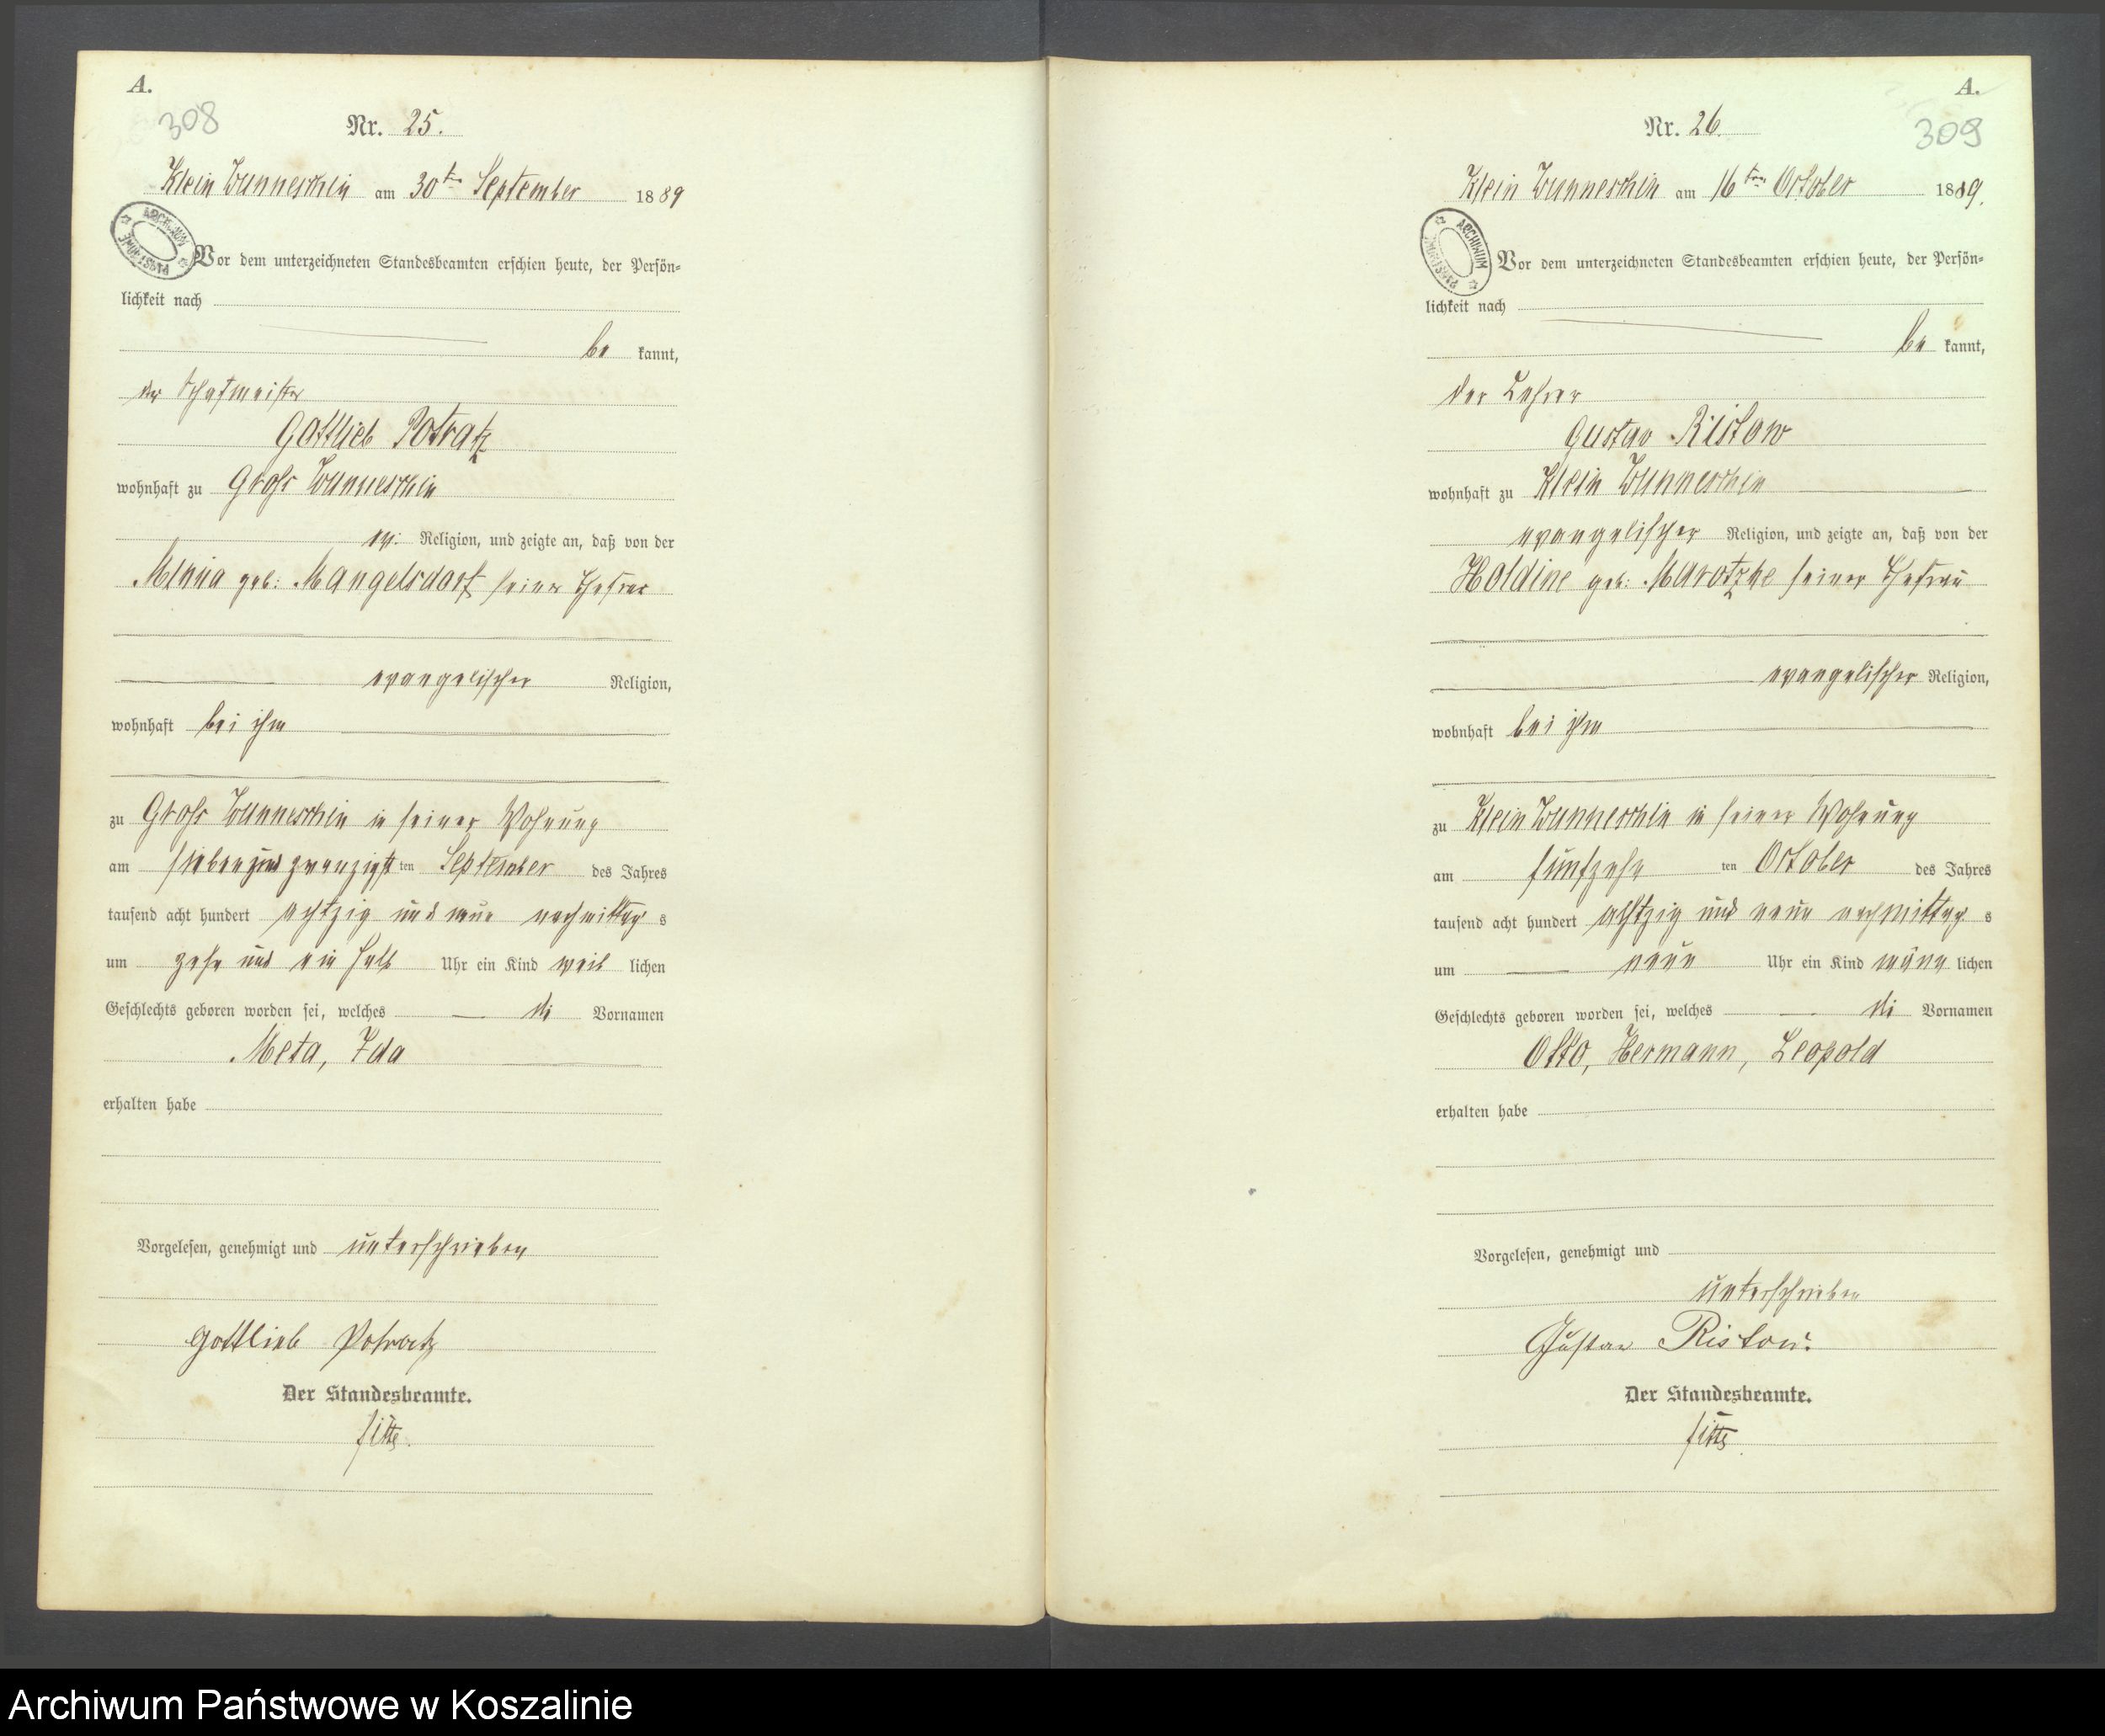 A.
308
Nr. 25.
Klein Wunneschin am 30ten September 1889
ARCHIWUM PAŃSTWOWE
Vor dem unterzeichneten Standesbeamten erschien heute, der Persön-
lichkeit nach
be kannt,
der Schafmeister
Gottlieb Potratz
wohnhaft zu Groß Wunneschin
ev: Religion, und zeigte an, daß von der
Minna geb: Mangelsdorf seiner Ehefrau
evangelischer Religion,
wohnhaft bei ihm
zu Groß Wunneschin in seiner Wohnung
am siebenundzwanzigsten September des Jahres
tausend acht hundert achtzig und neun nachmittags
um zehn und ein halb Uhr ein Kind weib lichen
Geschlechts geboren worden sei, welches die Vornamen
Meta, Ida
erhalten habe
Vorgelesen, genehmigt und unterschrieben
Gottlieb Potratz
Der Standesbeamte.
A.
309
Nr. 26.
Klein Wunneschin am 16ten October 1889.
ARCHIWUM PAŃSTWOWE
Vor dem unterzeichneten Standesbeamten erschien heute, der Persön-
lichkeit nach
be kannt,
der Lehrer
Gustav Ristow
wohnhaft zu Klein Wunneschin
evangelischer Religion, und zeigte an, daß von der
Holdine geb: Marotzke seiner Ehefrau
evangelischer Religion,
wohnhaft bei ihm
zu Klein Wunneschin in seiner Wohnung
am fünfzehn ten October des Jahres
tausend acht hundert achtzig und neun nachmittags
um neun Uhr ein Kind männ lichen
Geschlechts geboren worden sei, welches die Vornamen
Otto, Hermann, Leopold
erhalten habe
Vorgelesen, genehmigt und
unterschrieben
Gustav Ristow.
Der Standesbeamte.
Archiwum Państwowe w Koszalinie